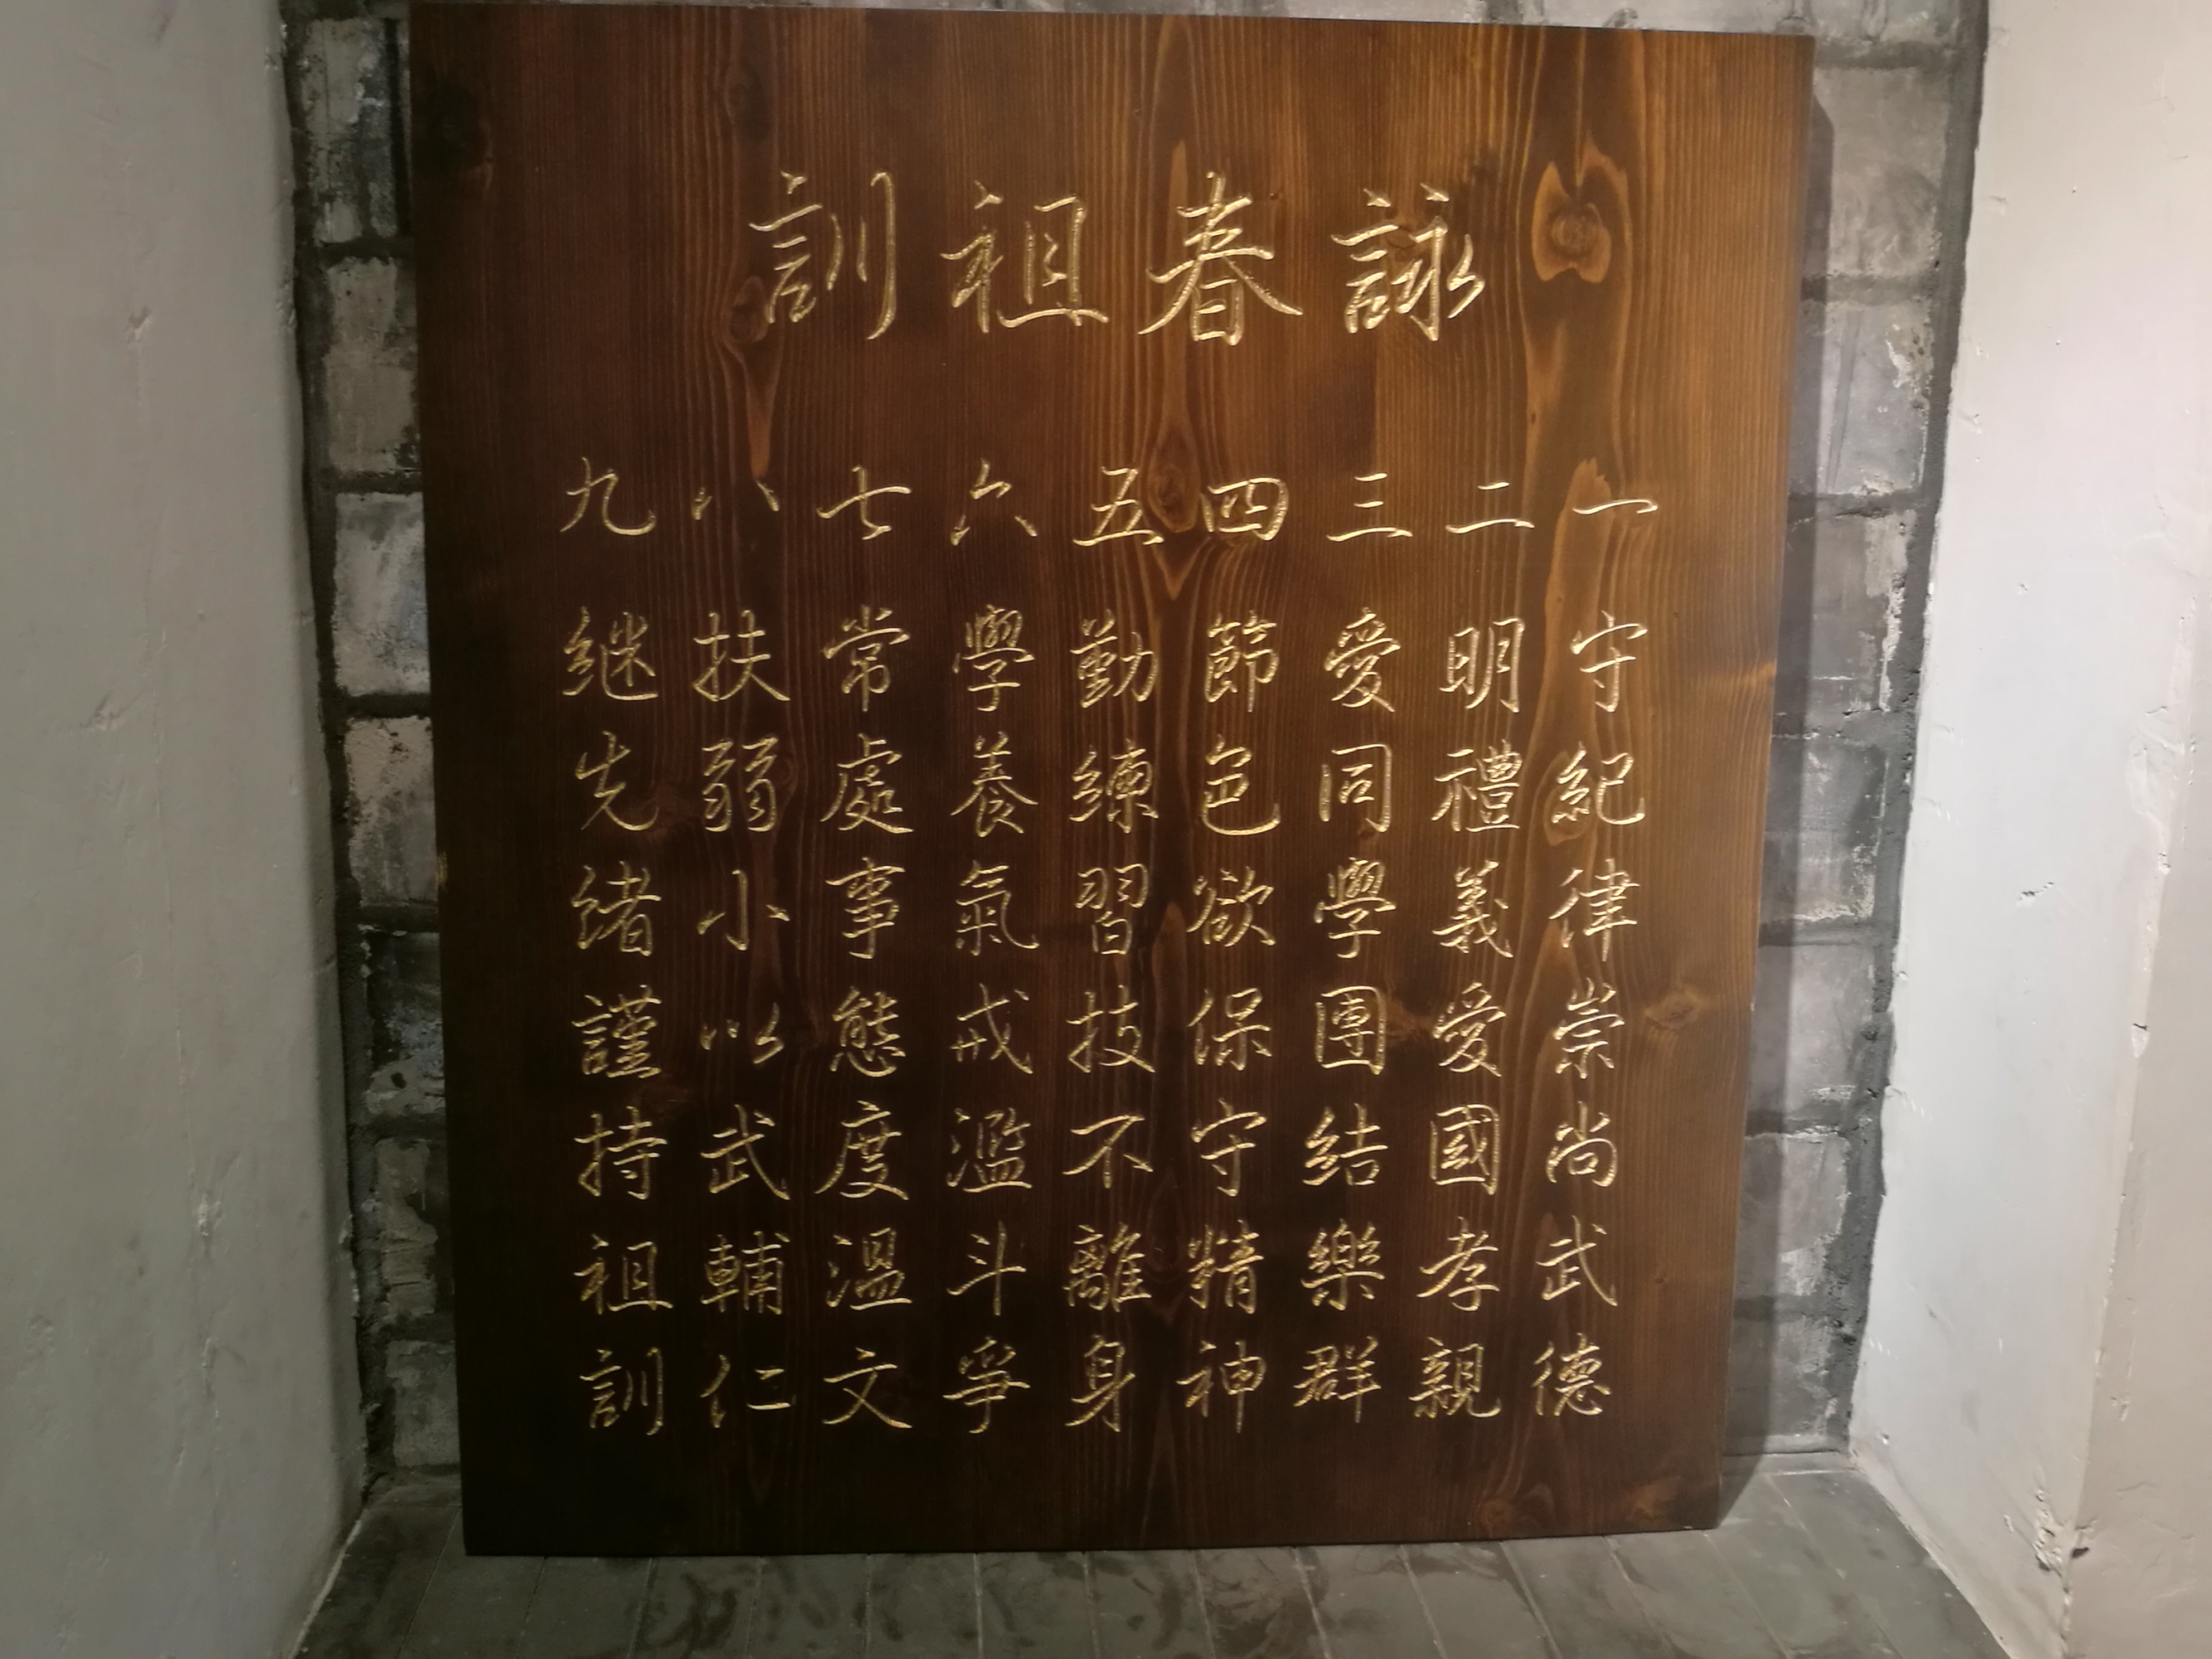 詠春祖訓
一守紀律崇尚武德
二明禮義愛國孝親
三愛同學團結樂群
四節色欲保守精神
五勤練習技不離身
六學養氣戒濫斗爭
七常處事態度溫文
八扶弱小以武輔仁
九继先緒謹持祖訓